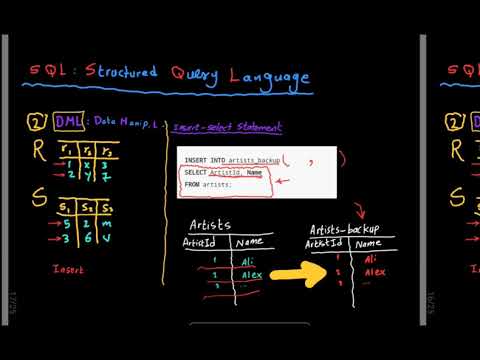 SQL: Structured Query Language
② DML: Data Manip. L.
R
r1 r2 r3
1 x 3
2 y 7
S
S1 S2 S3
5 2 m
3 6 v
Insert
Insert-select Statement
INSERT INTO artists_backup ( , )
SELECT ArtistId, Name
FROM artists;
Artists
ArtistId Name
1 Ali
2 Alex
3 ...
Artists-backup
ArtistId Name
1 Ali
2 Alex
3 ...
17/25
SQL
②
R
S
16/25